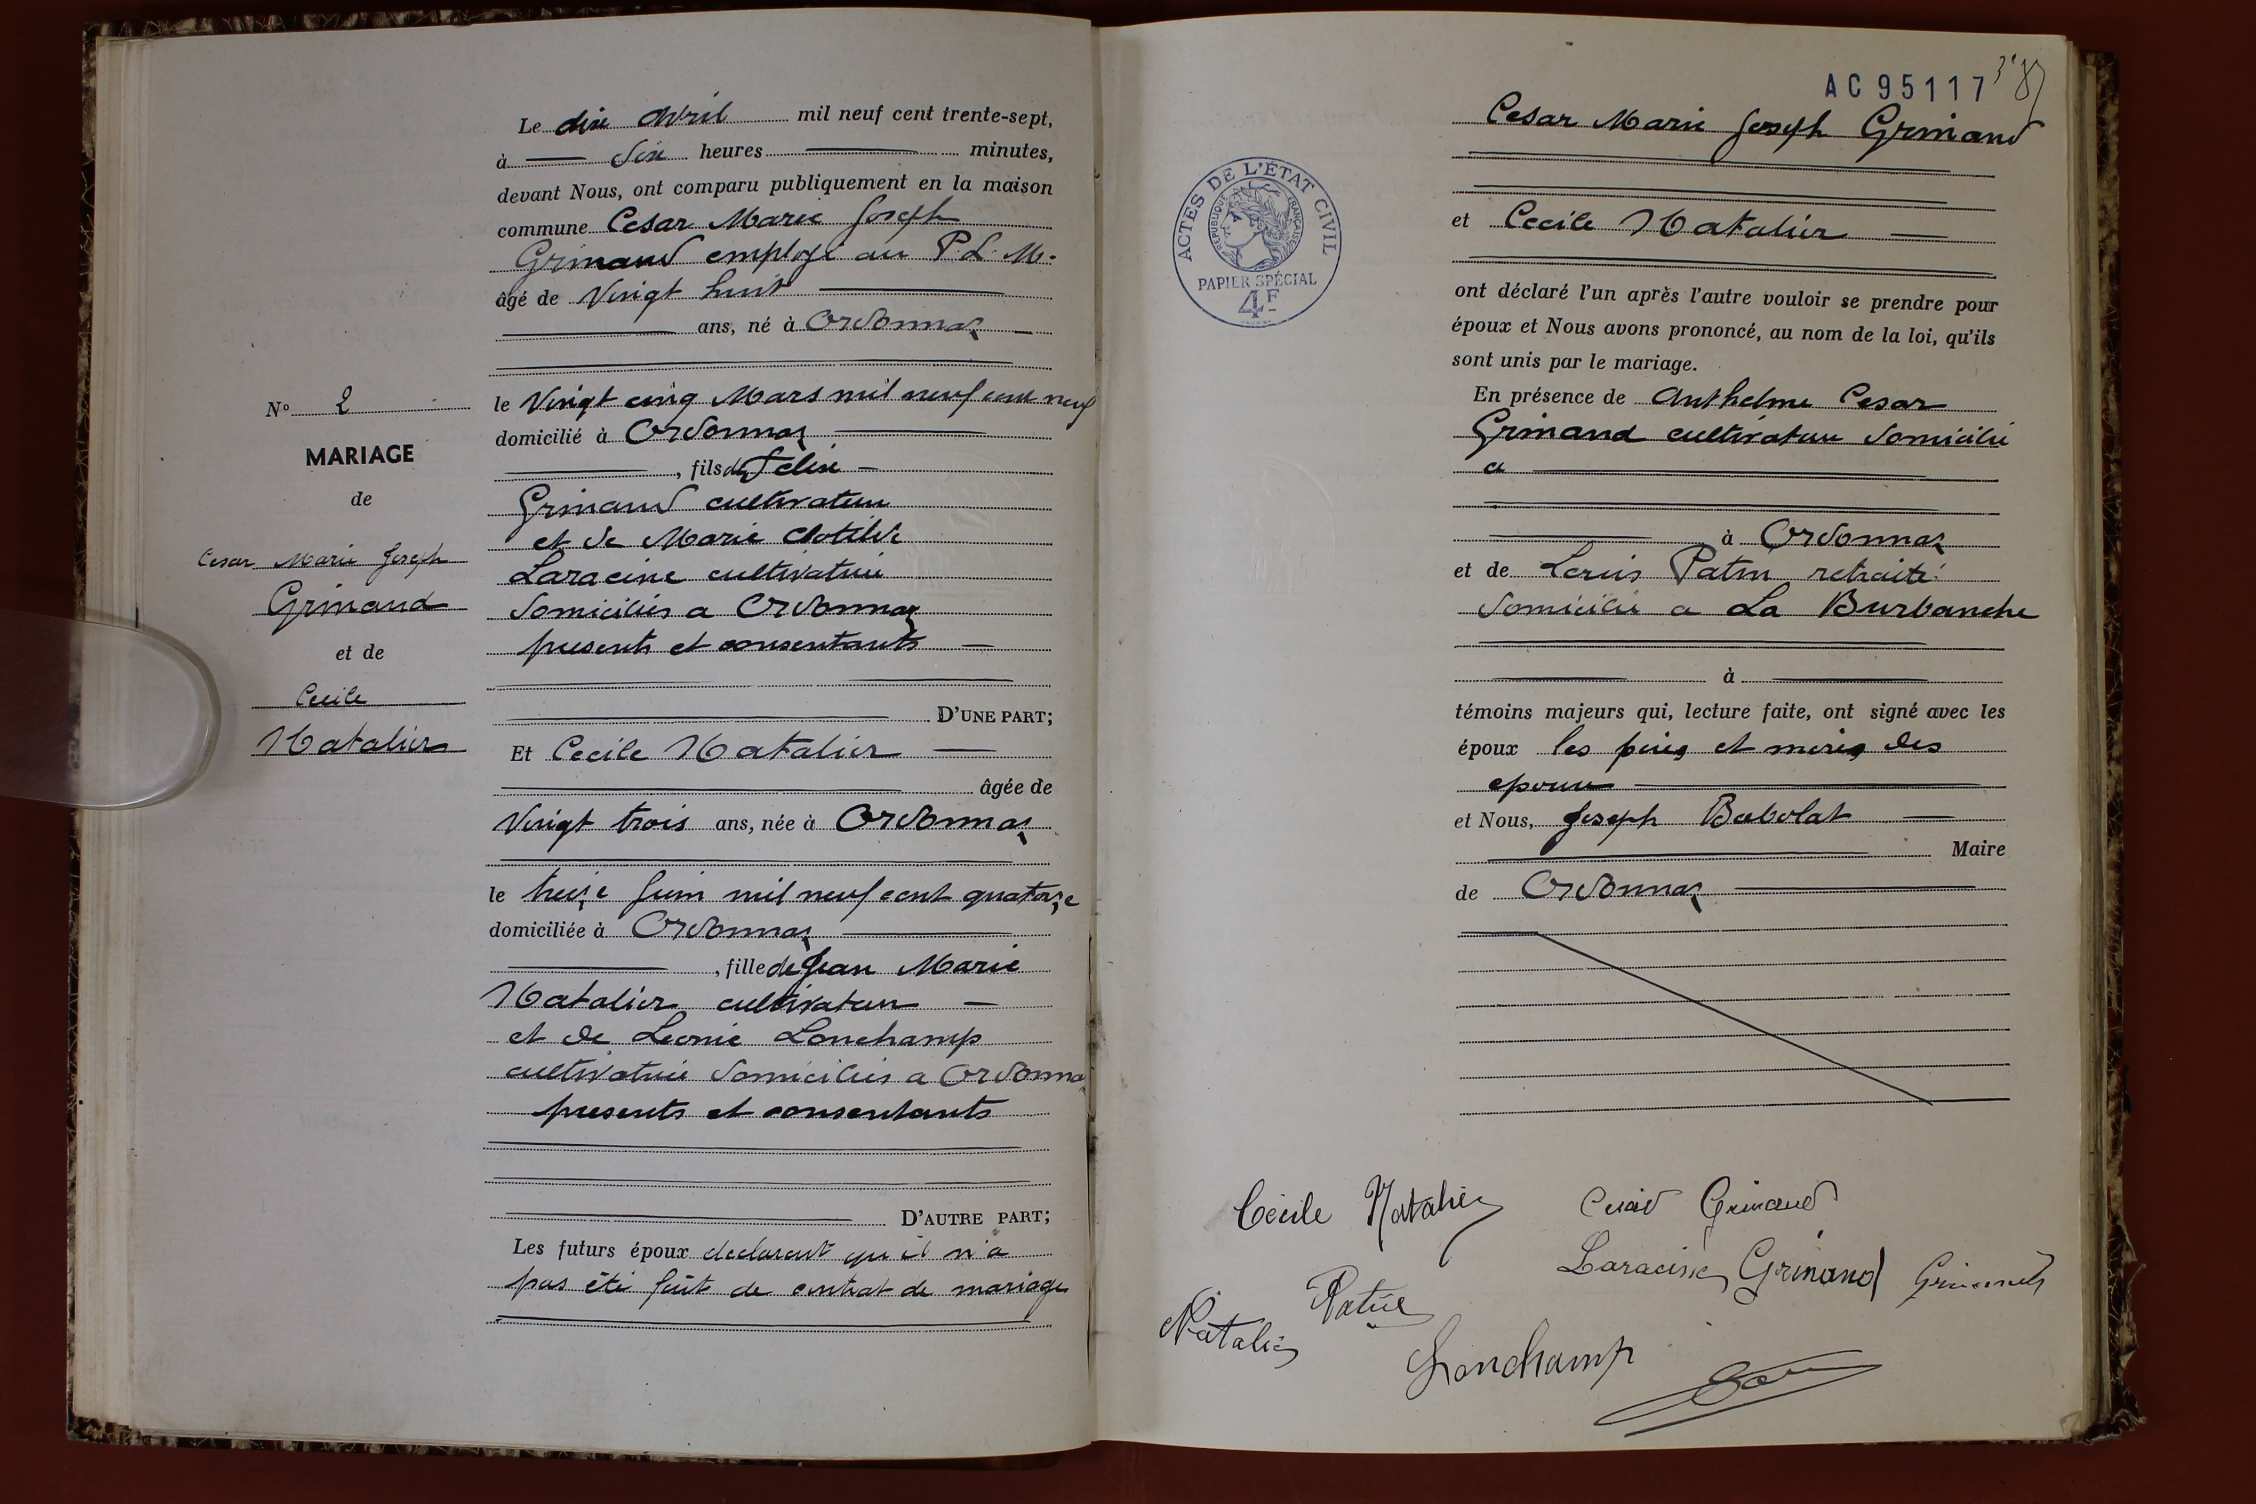 Le dix Avril mil neuf cent trente-sept,
à dix heures minutes,
devant Nous, ont comparu publiquement en la maison
commune Cesar Marie Joseph
Grinand employé au P.L.M.
âgé de Vingt huit
ans, né à Ordonnaz
N° 2
le Vingt cinq Mars mil neuf cent neuf
domicilié à Ordonnaz
MARIAGE
, fils de Felix
de
Grinand cultivateur
et de Marie Clotilde
Cesar Marie Joseph
Laracine cultivatrice
Grinand
domiciliés a Ordonnaz
et de
presents et consentants
Cecile
D'UNE PART;
Natalier
Et Cecile Natalier
âgée de
Vingt trois ans, née à Ordonnaz
le treize Juin mil neuf cent quatorze
domiciliée à Ordonnaz
, fille de Jean Marie
Natalier cultivateur
et de Leonie Lonchamp
cultivatrice domiciliés a Ordonnaz
presents et consentants
D'AUTRE PART;
Les futurs époux declarent qu'il n'a
pas été fait de contrat de mariage
AC 95117
Cesar Marie Joseph Grinand
ACTES DE L'ÉTAT CIVIL
RÉPUBLIQUE FRANÇAISE
PAPIER SPÉCIAL
4F
et Cecile Natalier
ont déclaré l'un après l'autre vouloir se prendre pour
époux et Nous avons prononcé, au nom de la loi, qu'ils
sont unis par le mariage.
En présence de Anthelme Cesar
Grinand cultivateur domicilié
a
à Ordonnaz
et de Louis Patin retraité
domicilié a La Burbanche
à
témoins majeurs qui, lecture faite, ont signé avec les
époux les pères et mères des
epoux
et Nous, Joseph Babolat
Maire
de Ordonnaz
Cécile Natalier Cesar Grinand
Laracine Grinand Grinand
Natalier
Lonchamp